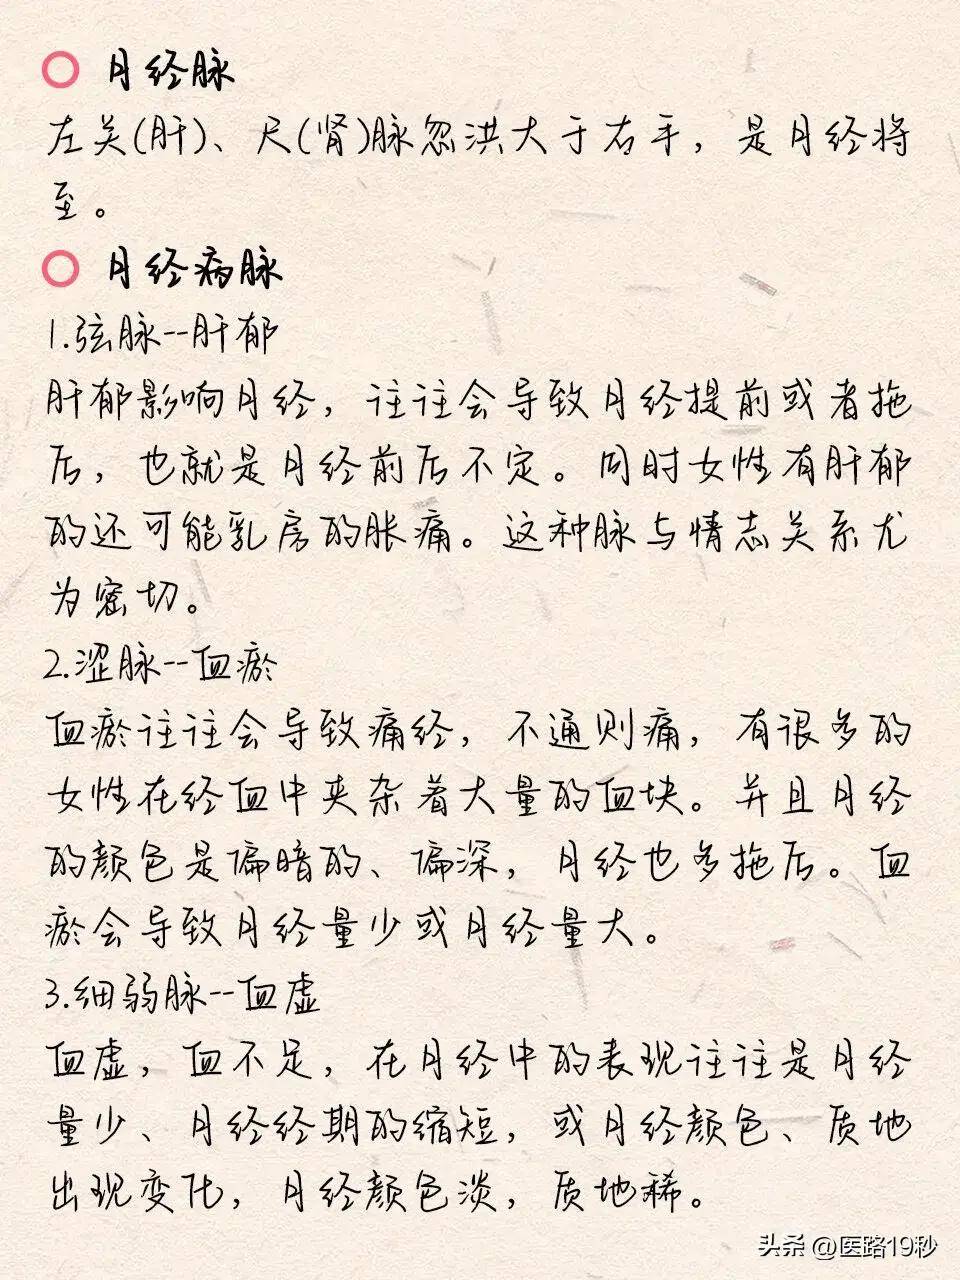 月经脉
左关(肝)、尺(肾)脉忽洪大于右手，是月经将
至。
月经病脉
1.弦脉--肝郁
肝郁影响月经，往往会导致月经提前或者拖
后，也就是月经前后不定。同时女性有肝郁
的还可能乳房的胀痛。这种脉与情志关系尤
为密切。
2.涩脉--血瘀
血瘀往往会导致痛经，不通则痛，有很多的
女性在经血中夹杂着大量的血块。并且月经
的颜色是偏暗的、偏深，月经也多拖后。血
瘀会导致月经量少或月经量大。
3.细弱脉--血虚
血虚，血不足，在月经中的表现往往是月经
量少、月经经期的缩短，或月经颜色、质地
出现变化，月经颜色淡，质地稀。
头条 @医路19秒